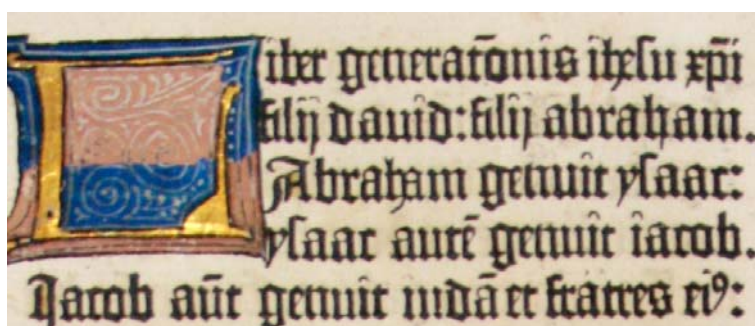 Liber generatōnis ihesu xp̄i
filij dauid: filij abraham.
Abraham genuit ysaac:
ysaac autē genuit iacob.
Jacob aūt genuit iudā et fratres eiꝰ: